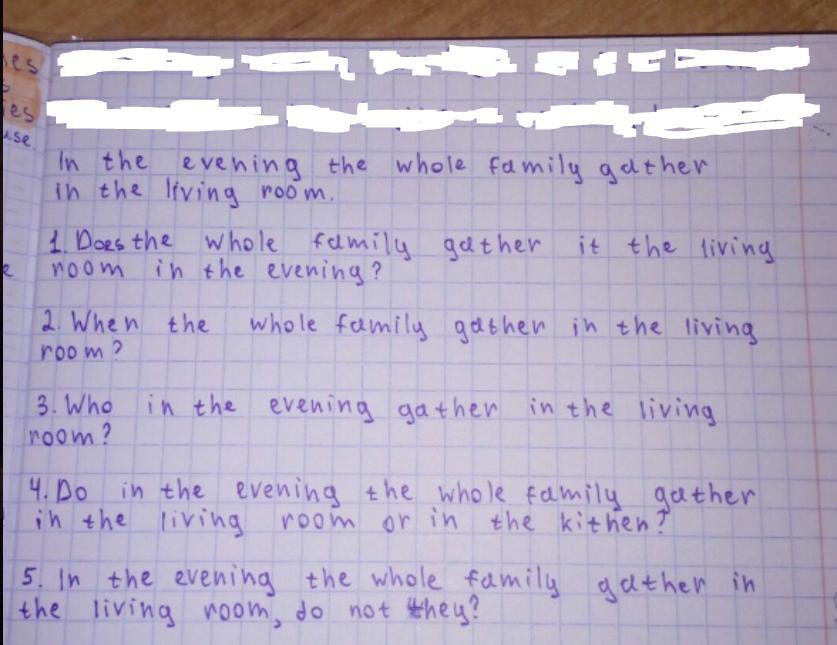 es
es
use
In the evening the whole family gather
in the living room.
1. Does the whole family gather it the living
room in the evening?
2. When the whole family gather in the living
room?
3. Who in the evening gather in the living
room?
4. Do in the evening the whole family gather
in the living room or in the kithen?
5. In the evening the whole family gather in
the living room, do not they?